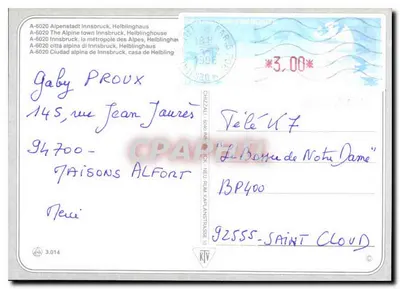 A-6020 Alpenstadt Innsbruck, Helblinghaus
A-6020 The Alpine town Innsbruck, Helblinghouse
A-6020 Innsbruck, la métropole des Alpes, Helblinghaus
A-6020 città alpina di Innsbruck, Helblinghaus
A-6020 Ciudad alpina de Innsbruck, casa de Helbling
*3,00*
Gaby PROUX
145, rue Jean Jaurès
94700-
MAISONS ALFORT
Merci
Télé K7
"Le Bossu de Notre Dame"
BP400
92555-SAINT CLOUD
CPARAMA
3.014
KTV